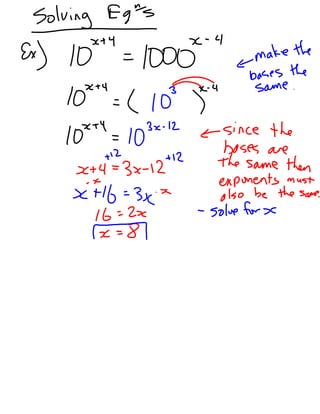 Solving Eqⁿ's
Ex) 10^(x+4) = 1000^(x-4) ← make the bases the same.
10^(x+4) = (10³)^(x-4)
10^(x+4) = 10^(3x-12) ← since the bases are the same then exponents must also be the same
+12 +12
x+4 = 3x-12
-x -x
x+16 = 3x
16 = 2x - solve for x
x = 8